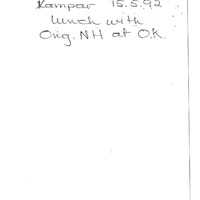 Kampar 15.5.92
lunch with
Orig. NH at O.K.